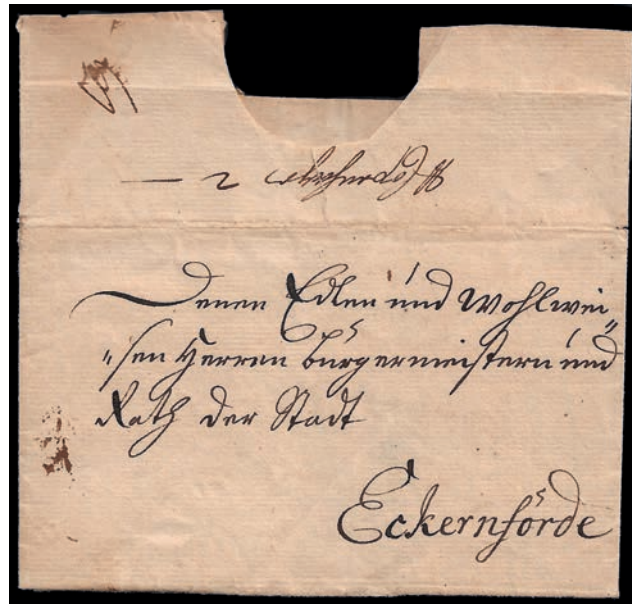 Denen Edlen und Wohlwei„
„sen Herren bürgermeistern und
Rath der Stadt
Eckernförde